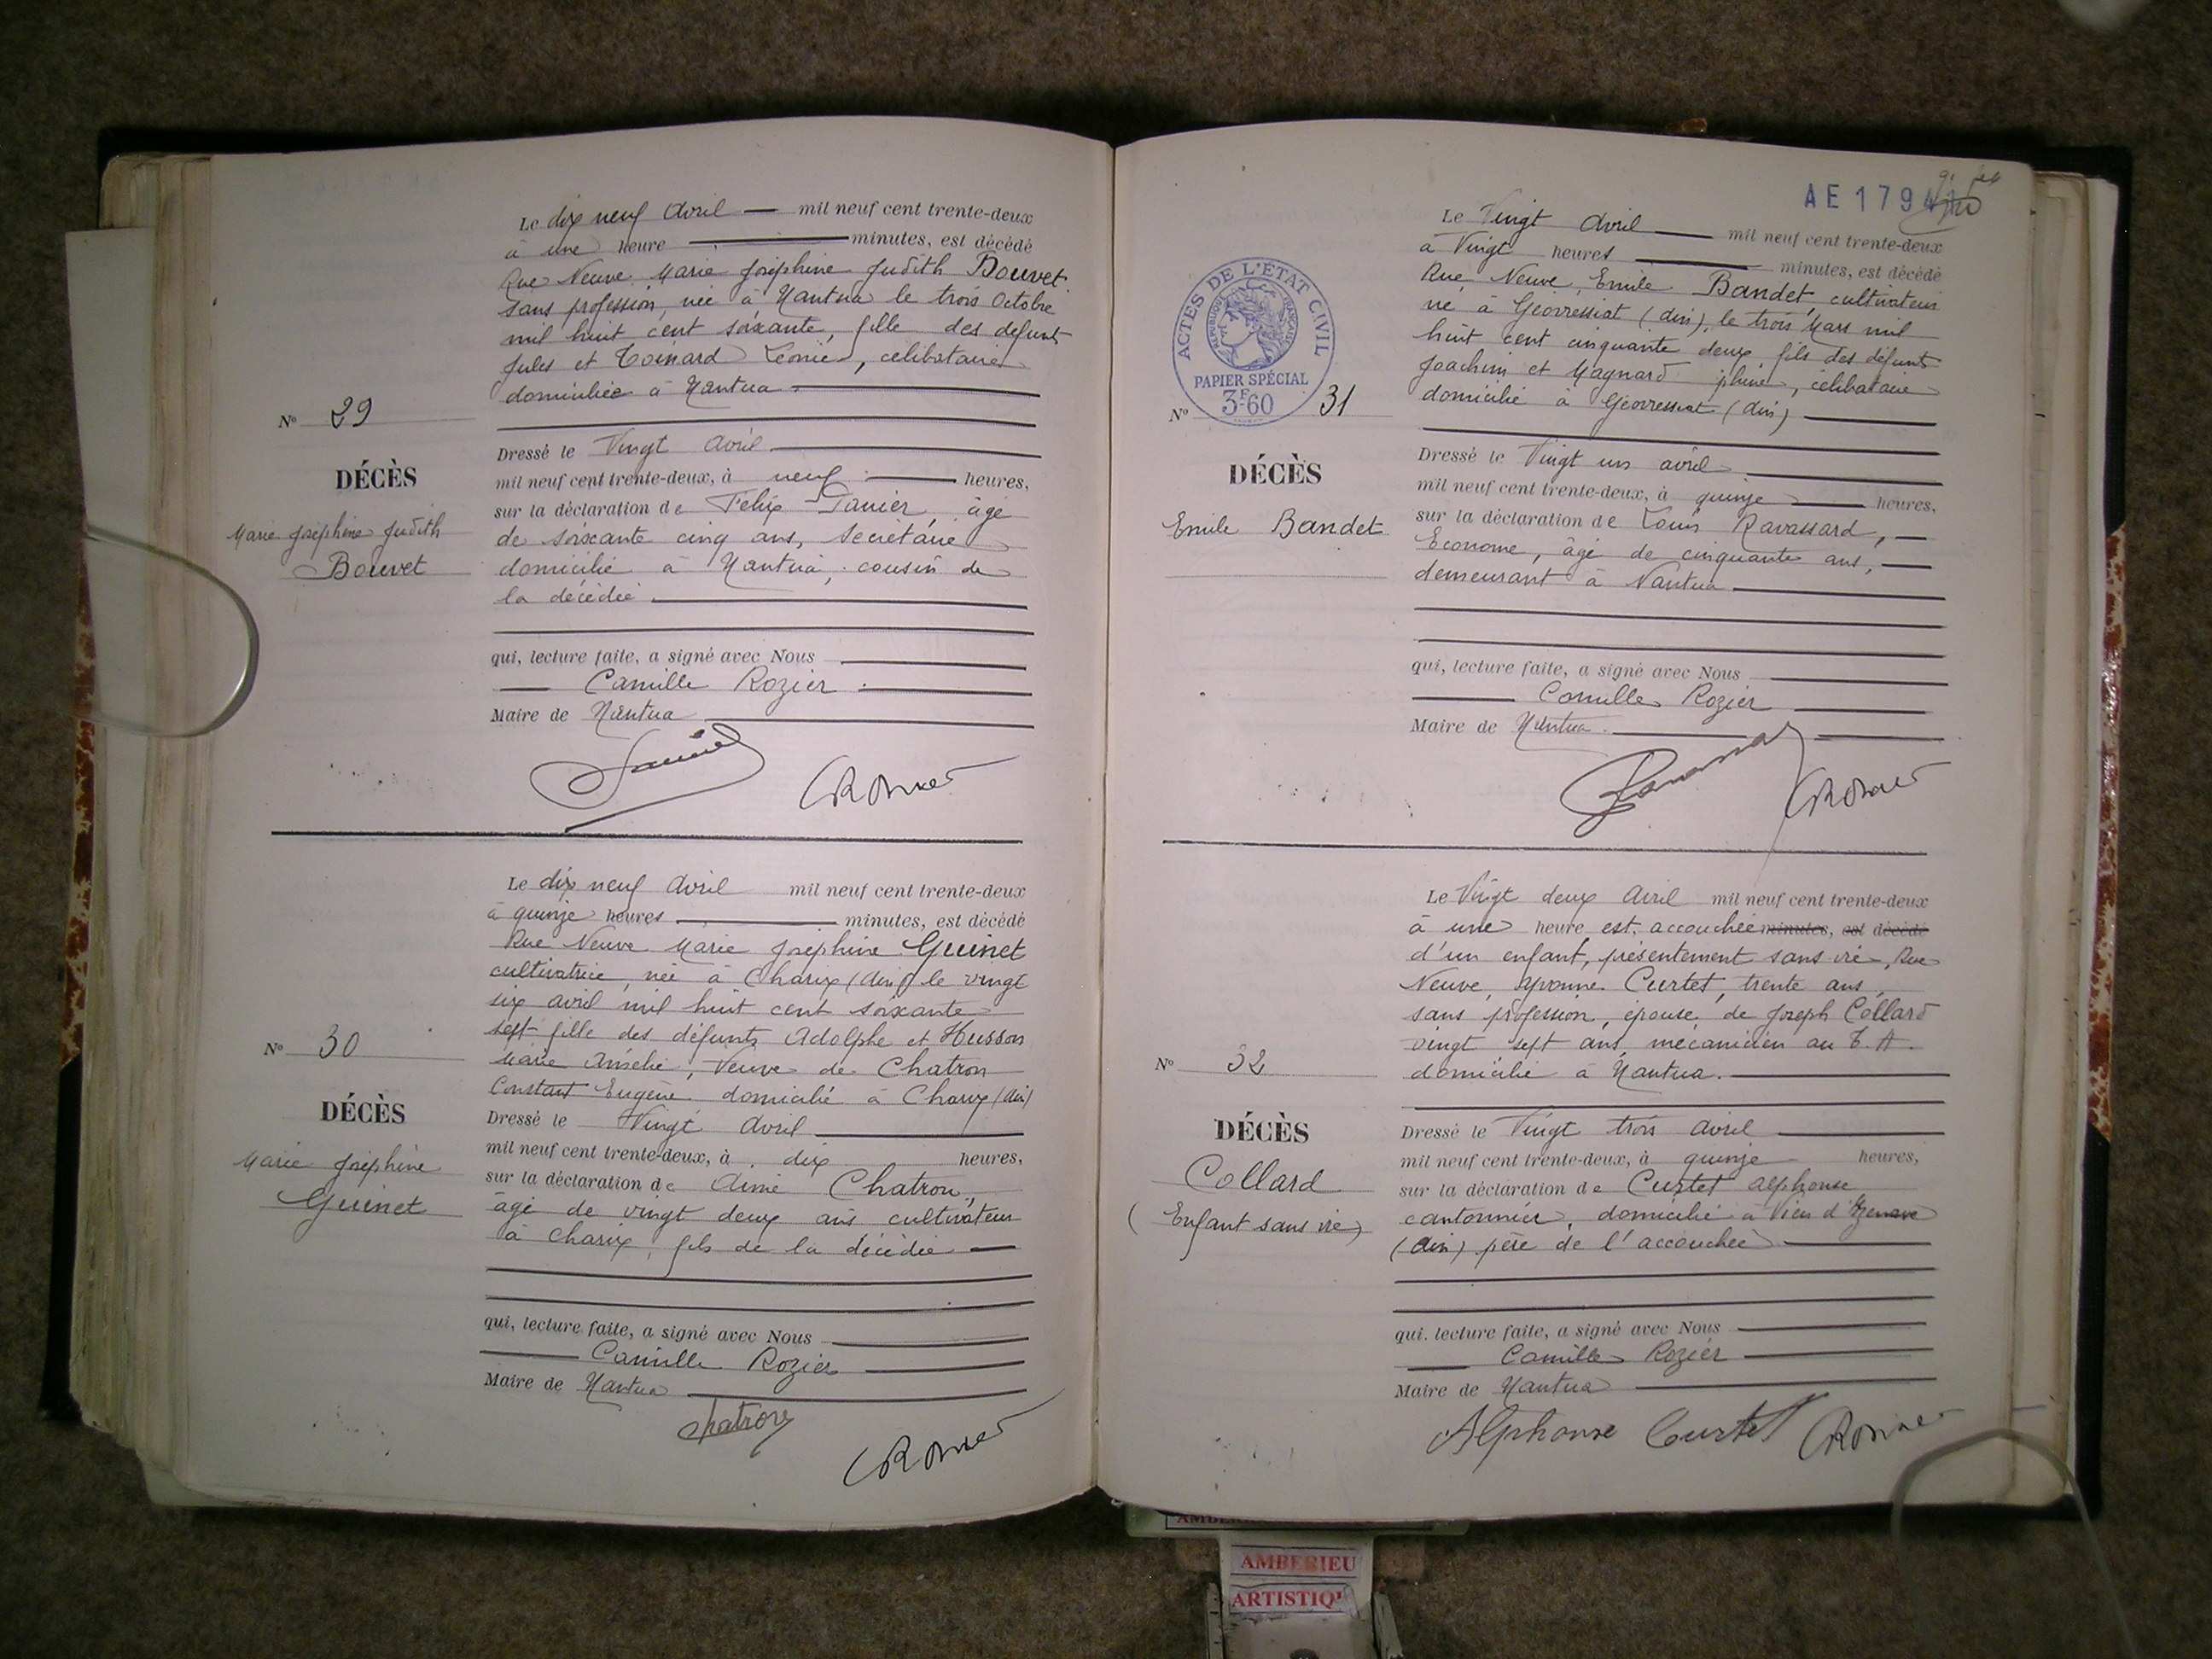 Le dix neuf Avril mil neuf cent trente-deux
à une heure minutes, est décédé
Rue Neuve Marie Joséphine Judith Bouvet
sans profession, née à Nantua le trois Octobre
mil huit cent soixante, fille des défunts
Jules et Léonie, célibataire
domiciliée à Nantua
N° 29
DÉCÈS
Marie Joséphine Judith
Bouvet
Dressé le Vingt Avril
mil neuf cent trente-deux, à neuf heures,
sur la déclaration de Félix Tanier, âgé
de soixante cinq ans, secrétaire
domicilié à Nantua, cousin de
la décédée
qui, lecture faite, a signé avec Nous
Camille Rozier
Maire de Nantua
Le dix neuf Avril mil neuf cent trente-deux
à quinze heures minutes, est décédé
Rue Neuve Marie Joséphine Guinet
cultivatrice, née à Charix (Ain) le vingt
six avril mil huit cent soixante
sept fille des défunts Adolphe et Husson
Marie Amélie, Veuve de Chatron
Constant Eugène domicilié à Charix (Ain)
N° 30
DÉCÈS
Marie Joséphine
Guinet
Dressé le Vingt Avril
mil neuf cent trente-deux, à dix heures,
sur la déclaration de Aimé Chatron,
âgé de vingt deux ans cultivateur
à Charix, fils de la décédée
qui, lecture faite, a signé avec Nous
Camille Rozier
Maire de Nantua
Chatron
AE 179
ACTES DE L'ÉTAT CIVIL
RÉPUBLIQUE FRANÇAISE
PAPIER SPÉCIAL
3F60
Le Vingt Avril mil neuf cent trente-deux
à Vingt heures minutes, est décédé
Rue Neuve, Emile Bandet, cultivateur
né à Géovressiat (Ain), le trois Mars mil
huit cent cinquante deux fils des défunts
Joachim et Magnard célibataire
domicilié à Géovressiat (Ain)
N° 31
DÉCÈS
Emile Bandet
Dressé le Vingt un avril
mil neuf cent trente-deux, à quinze heures,
sur la déclaration de Louis Ravassard,
Econome, âgé de cinquante ans,
demeurant à Nantua
qui, lecture faite, a signé avec Nous
Camille Rozier
Maire de Nantua
Le Vingt deux Avril mil neuf cent trente-deux
à une heure est accouchée minutes, est décédé
d'un enfant, présentement sans vie, Rue
Neuve, Yvonne Curtet, trente ans,
sans profession, épouse de Joseph Collard
vingt sept ans, mécanicien au T.A.
domicilié à Nantua.
N° 32
DÉCÈS
Collard
(Enfant sans vie)
Dressé le Vingt trois Avril
mil neuf cent trente-deux, à quinze heures,
sur la déclaration de Curtet Alphonse
cantonnier, domicilié à Vieu d'Izenave
(Ain) père de l'accouchée
qui, lecture faite, a signé avec Nous
Camille Rozier
Maire de Nantua
Alphonse Curtet
AMBERIEU
ARTISTIQ